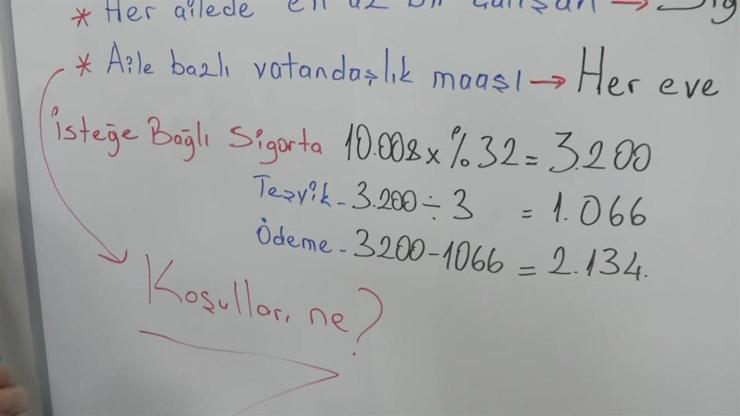 * Her ailede en az bir çalışan →
* Aile bazlı vatandaşlık maaşı → Her eve
İsteğe Bağlı Sigorta 10.008 x %32 = 3.200
Teşvik - 3.200 ÷ 3 = 1.066
Ödeme - 3200 - 1066 = 2.134.
Koşulları ne?